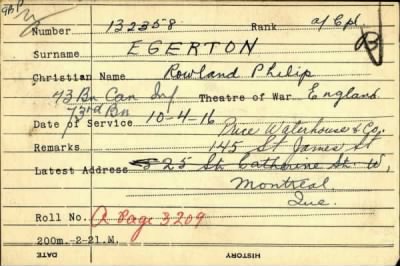 Number 132358 Rank a/Cpl.
B
Surname EGERTON
Christian Name Rowland Philip
73 Bn Can Inf Theatre of War England
73rd Bn
Date of Service 10-4-16
Price Waterhouse & Co.
Remarks 145 St James St
Latest Address 525 St. Catherine St. W,
Montreal
Que.
Roll No. A Page 3209
200m.-2-21.M.
HISTORY